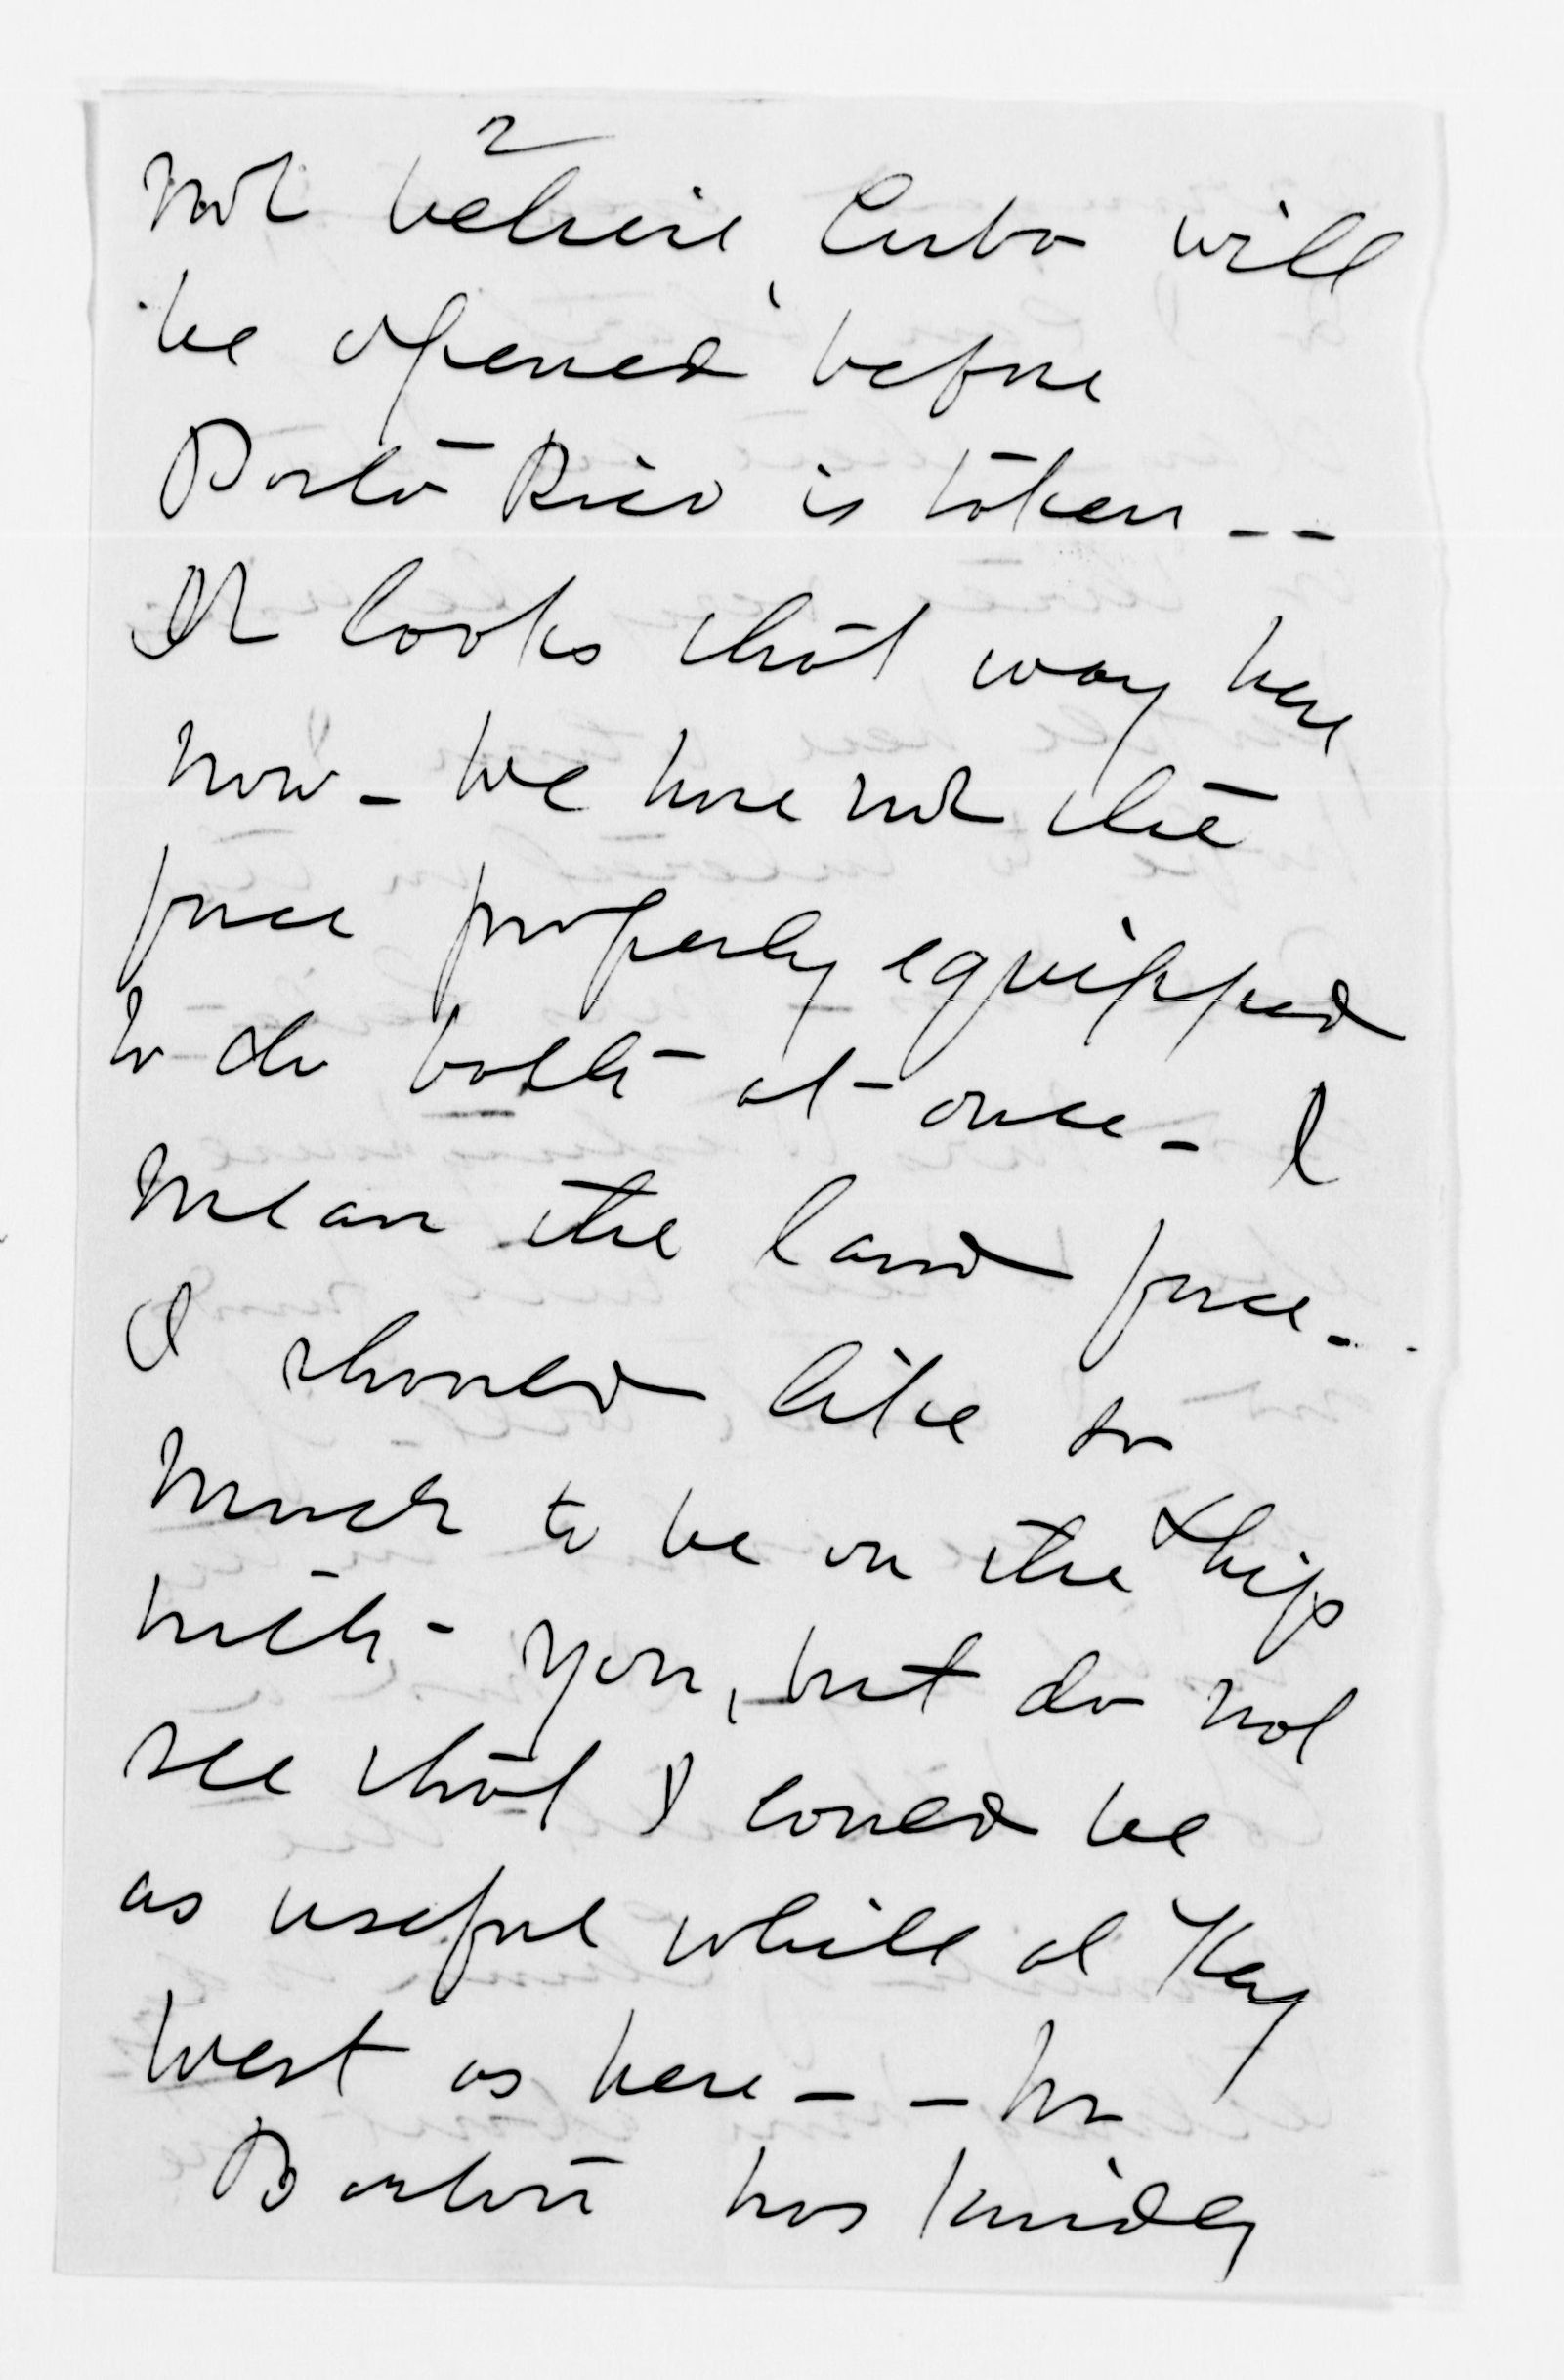 2
not believe Cuba will
be opened before
Porto Rico is taken --
It looks that way here
now - We have not the
force properly equipped
to do both at once - I
mean the land force -
I should like so
much to be on the ship
with you, but do not
see that I could be
as useful while at Key
West as here - - Mr
Barton has kindly